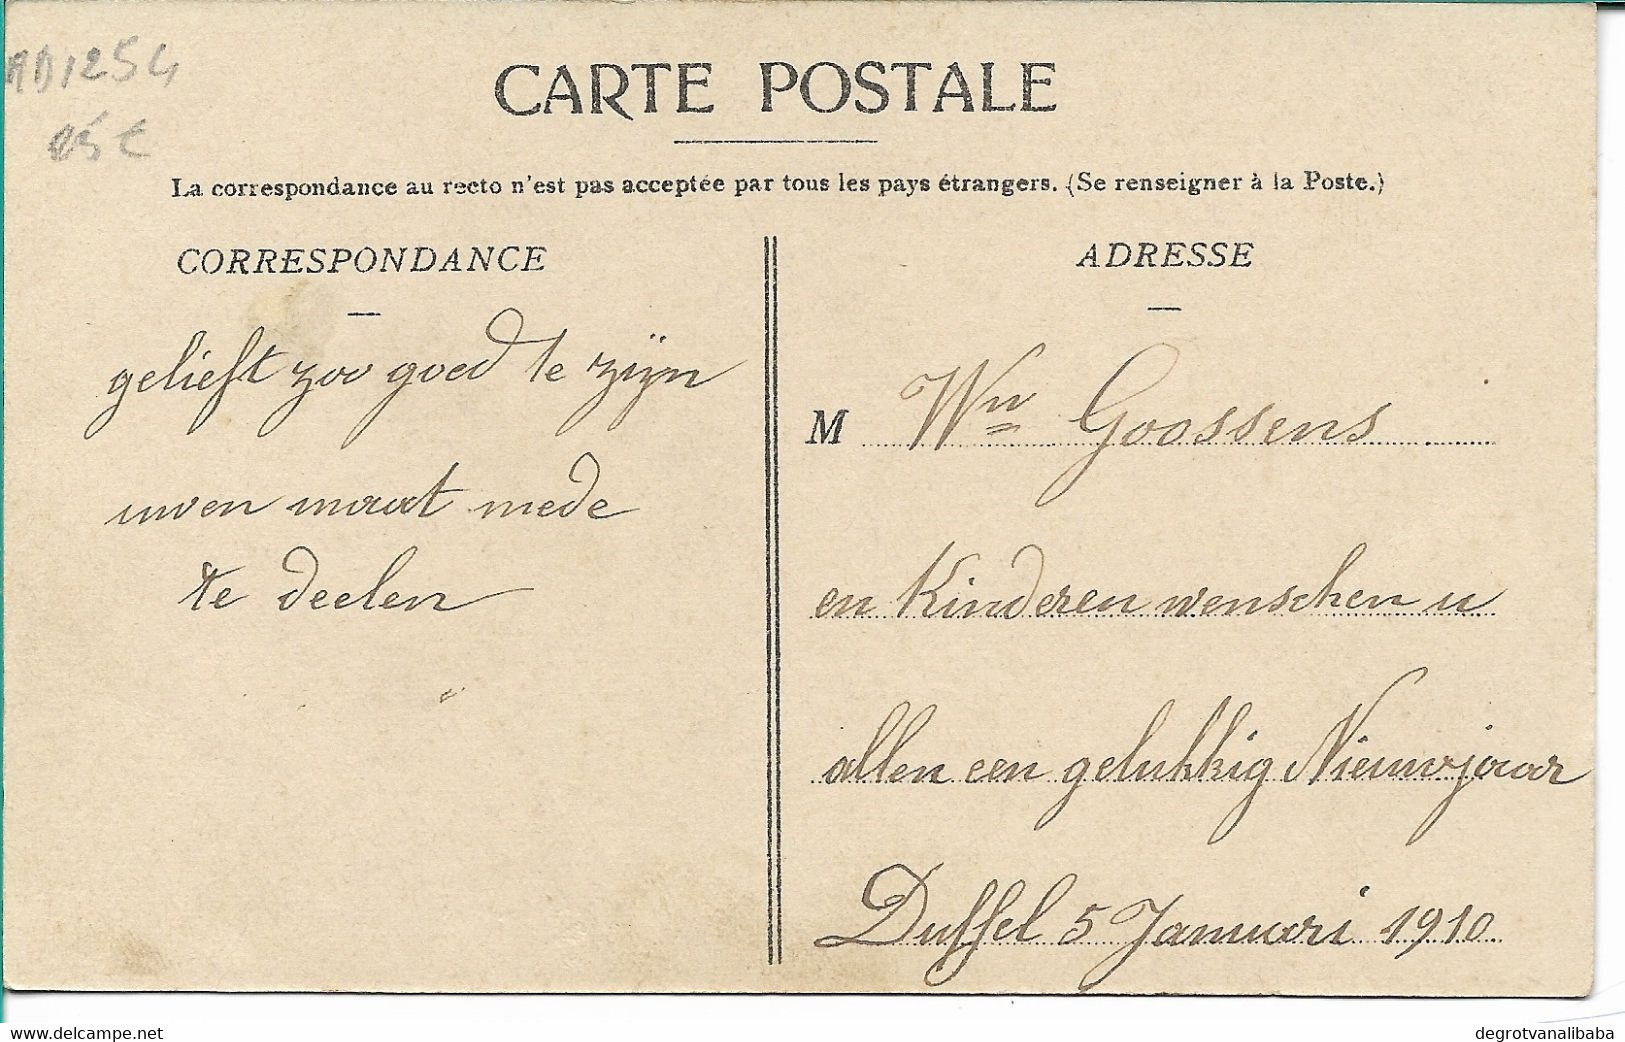 AD1254
CARTE POSTALE
La correspondance au recto n'est pas acceptée par tous les pays étrangers. (Se renseigner à la Poste.)
CORRESPONDANCE
gelieft zoo goed te zijn
uwen maat mede
te deelen
ADRESSE
M Wwe Goossens
en Kinderen wenschen u
allen een gelukkig Nieuwjaar
Duffel 5 Januari 1910
www.delcampe.net
degrotvanalibaba